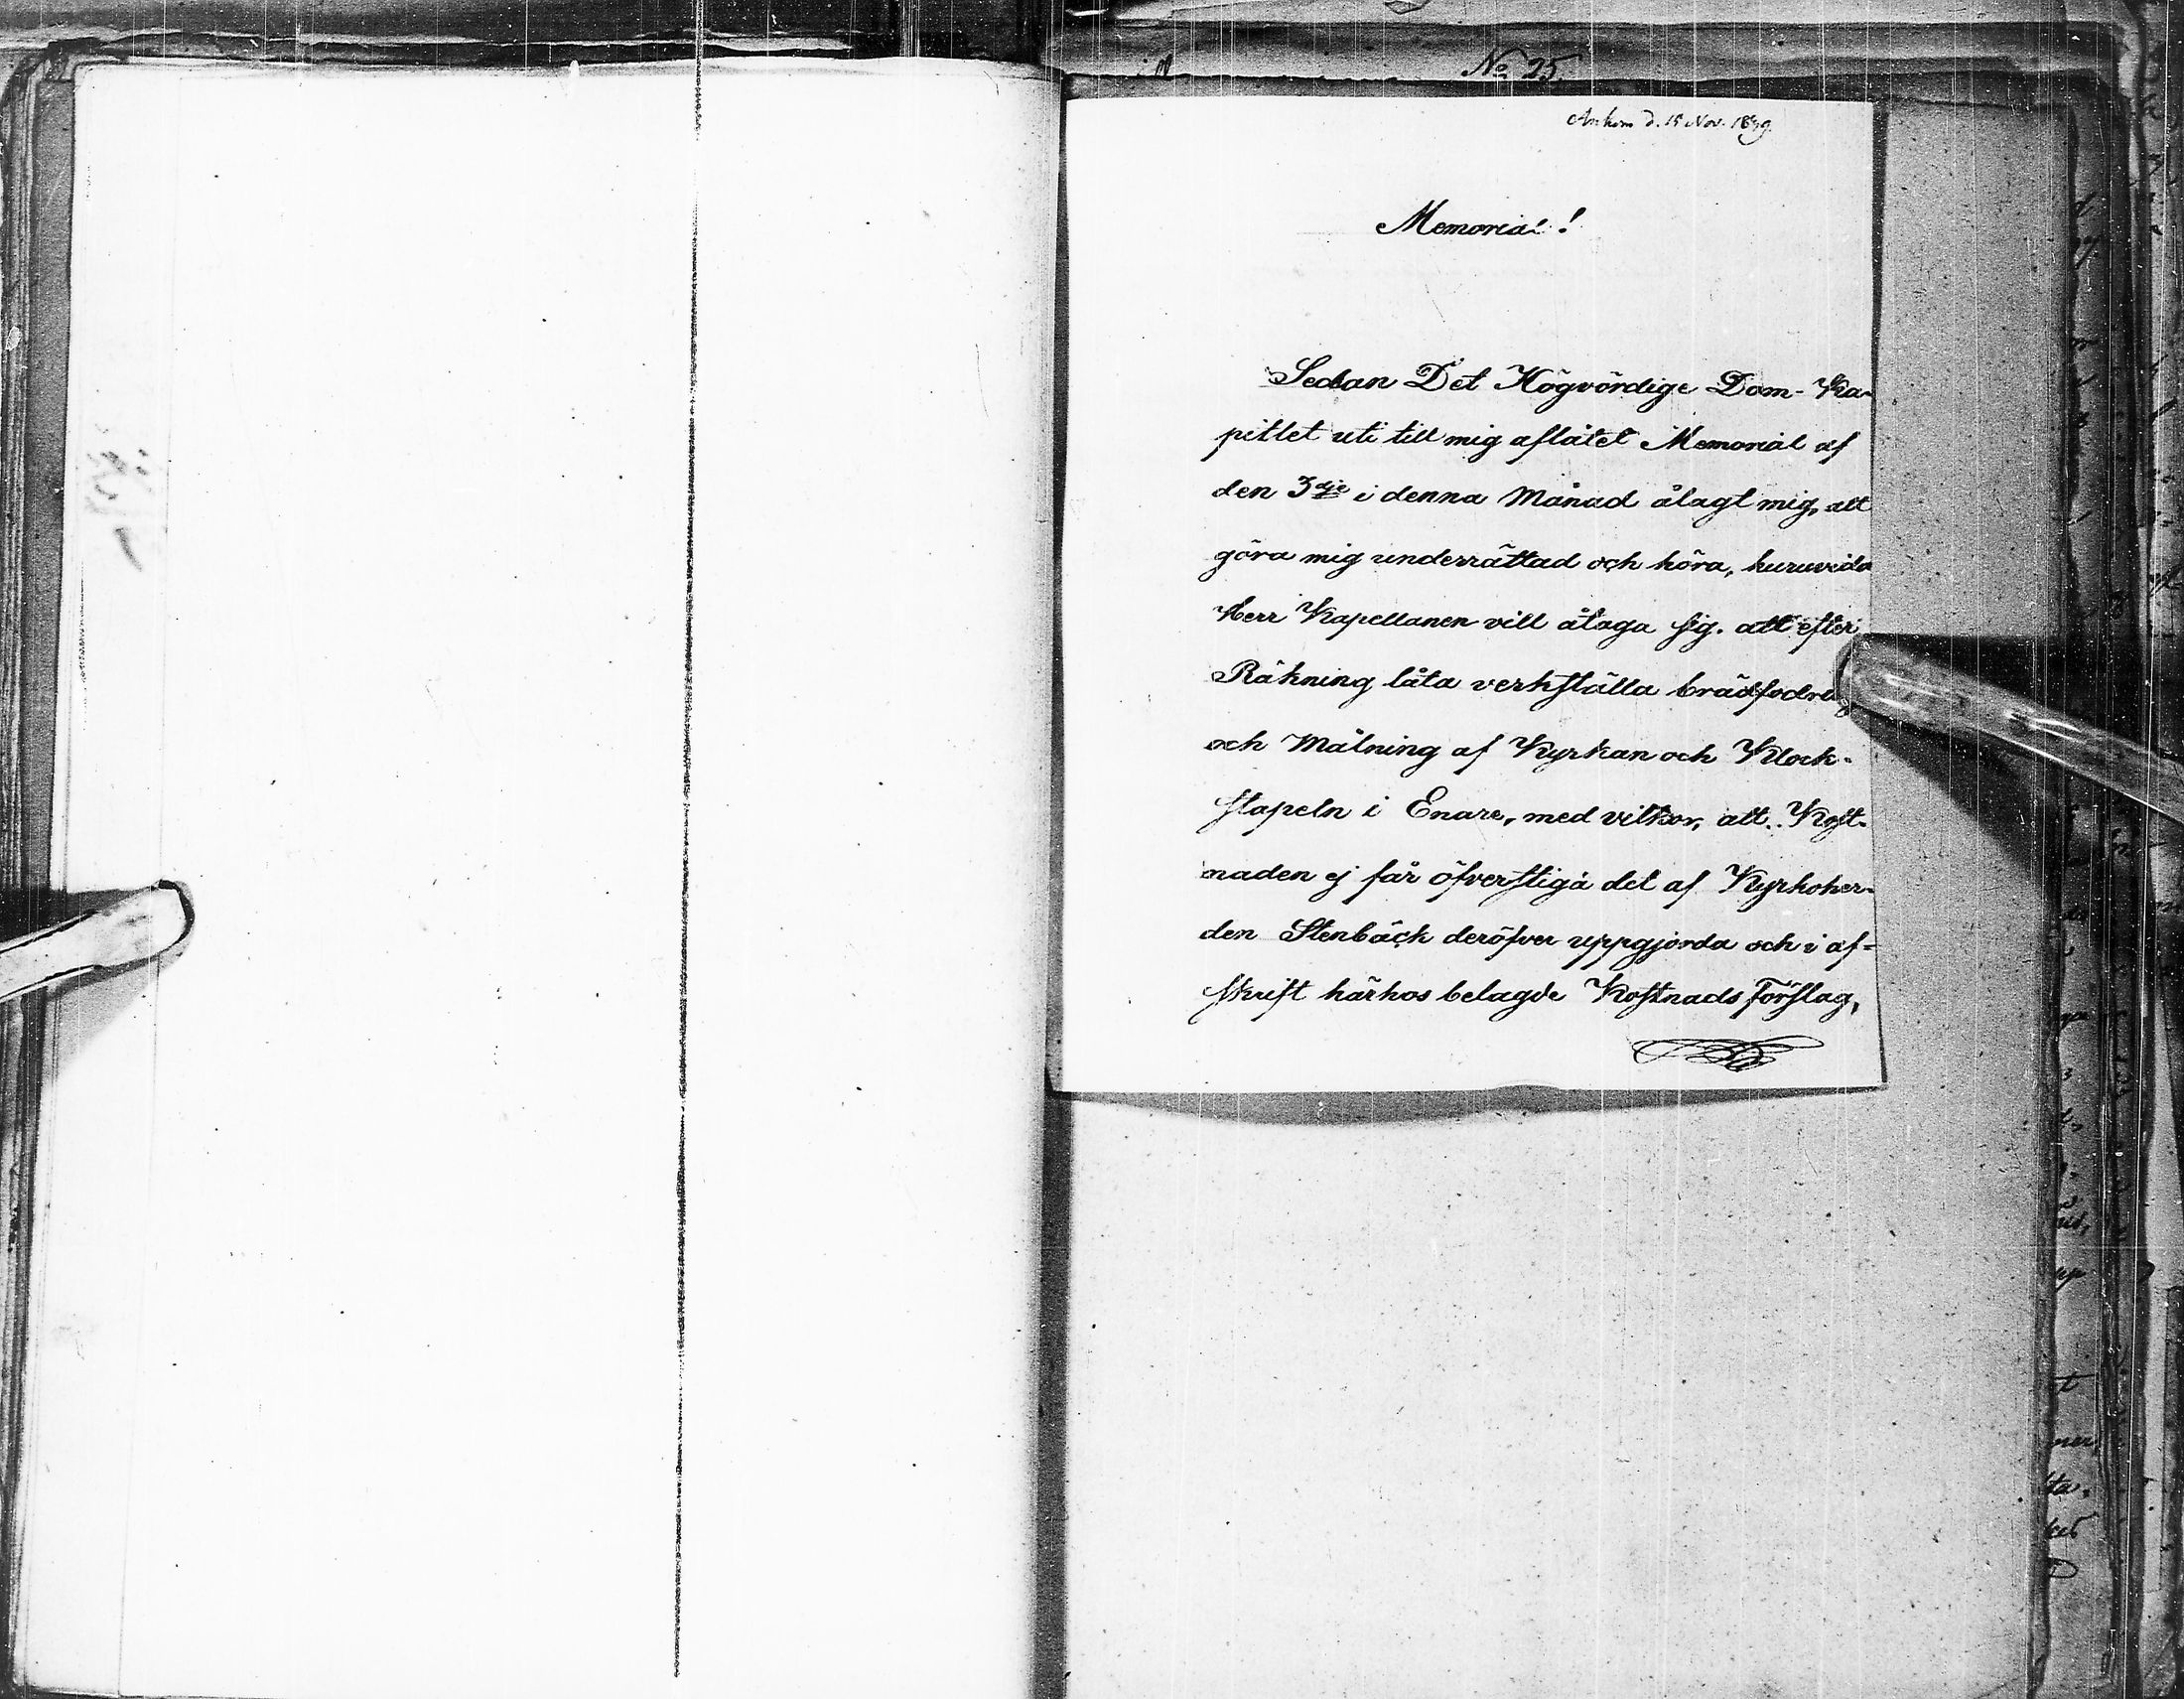 No 25
Ankom d. 15 Nov. 1839.
Memorial!
Sedan Det Högvördige Dom-Ka-
pitlet uti till mig aflåtet Memorial af
den 3dje i denna Månad ålagt mig, att
göra mig underrättad och höra, huruvida
Herr Kapellanen vill åtaga sig, att efter
Räkning låta verkställa brädfodring
och Målning af Kyrkan och Klock-
stapeln i Enare, med vilkor, att Kost-
naden ej får öfverstiga det af Kyrkoher-
den Stenbäck deröfver uppgjorda och i af-
skrift härhos belagde Kostnads Förslag,